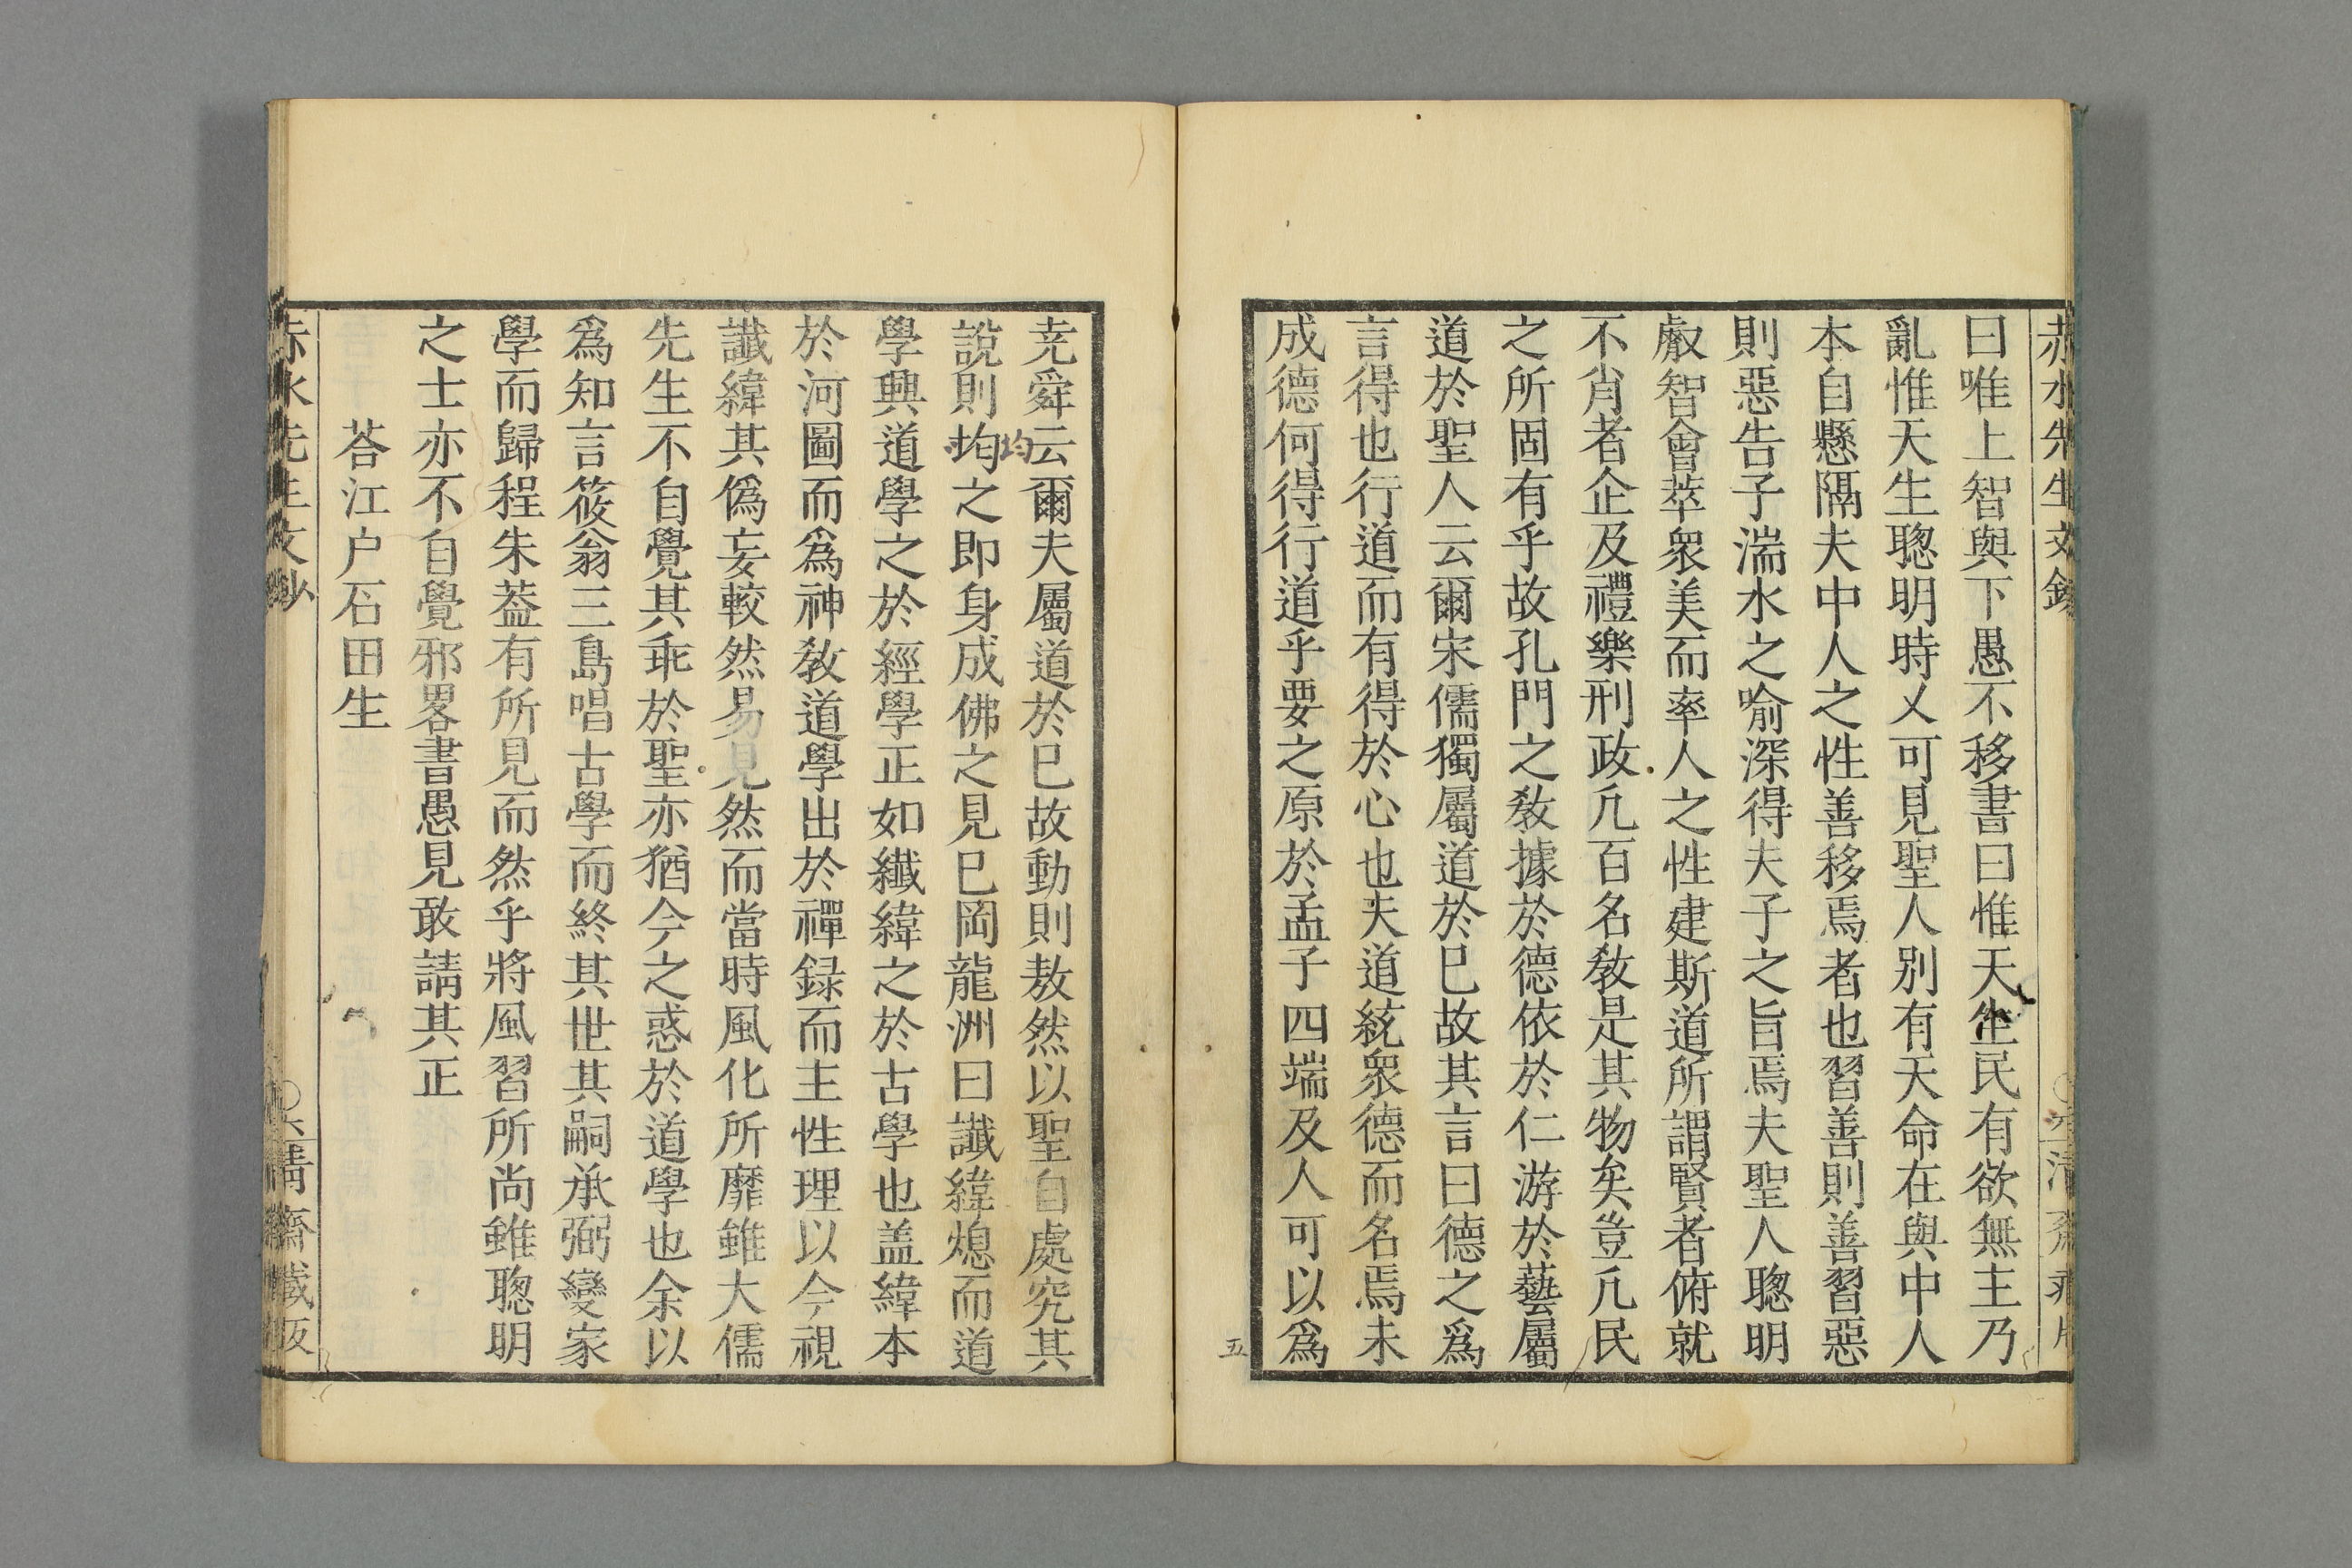 曰唯上智與下愚不移書曰惟天生民有欲無主乃
亂惟天生聰明時乂可見聖人別有天命在與中人
本自懸隔夫中人之性善移焉者也習善則善習惡
則惡告子湍水之喻深得夫子之旨焉夫聖人聰明
叡智會萃衆美而率人之性建斯道所謂賢者俯就
不肖者企及禮樂刑政凢百名敎是其物矣豈凢民
之所固有乎故孔門之敎據於德依於仁游於藝屬
道於聖人云爾宋儒獨屬道於巳故其言曰德之爲
言得也行道而有得於心也夫道統衆德而名焉未
成德何得行道乎要之原於孟子四端及人可以爲
五
尭舜云爾夫屬道於巳故動則敖然以聖自處究其
均
說則均之即身成佛之見巳岡龍洲曰讖緯熄而道
學興道學之於經學正如纎緯之於古學也盖緯本
於河圖而爲神敎道學出於禪録而主性理以今視
讖緯其僞妄較然易見然而當時風化所靡雖大儒
先生不自覺其乖於聖亦猶今之惑於道學也余以
爲知言筱翁三島唱古學而終其世其嗣承弼變家
學而歸程朱葢有所見而然乎將風習所尚雖聰明
之士亦不自覺邪畧書愚見敢請其正
荅江户石田生
赤水先生文鈔